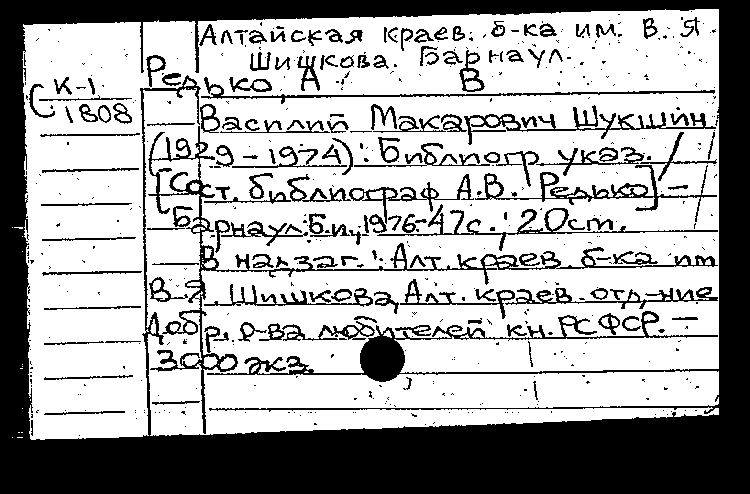 Алтайская краев. б-ка им. В. Я.
Шишкова. Барнаул.
Редько, А В
К-1
1808
Василий Макарович Шукшин
(1929-1974): Библиогр. указ. /
[Сост. библиограф А.В. Редько]. -
Барнаул: Б.и., 1976.-47с.; 20см.
В надзаг.: Алт. краев. б-ка им
В.Я. Шишкова, Алт. краев. отд-ние
Добр. о-ва любителей кн. РСФСР. -
3000 экз.